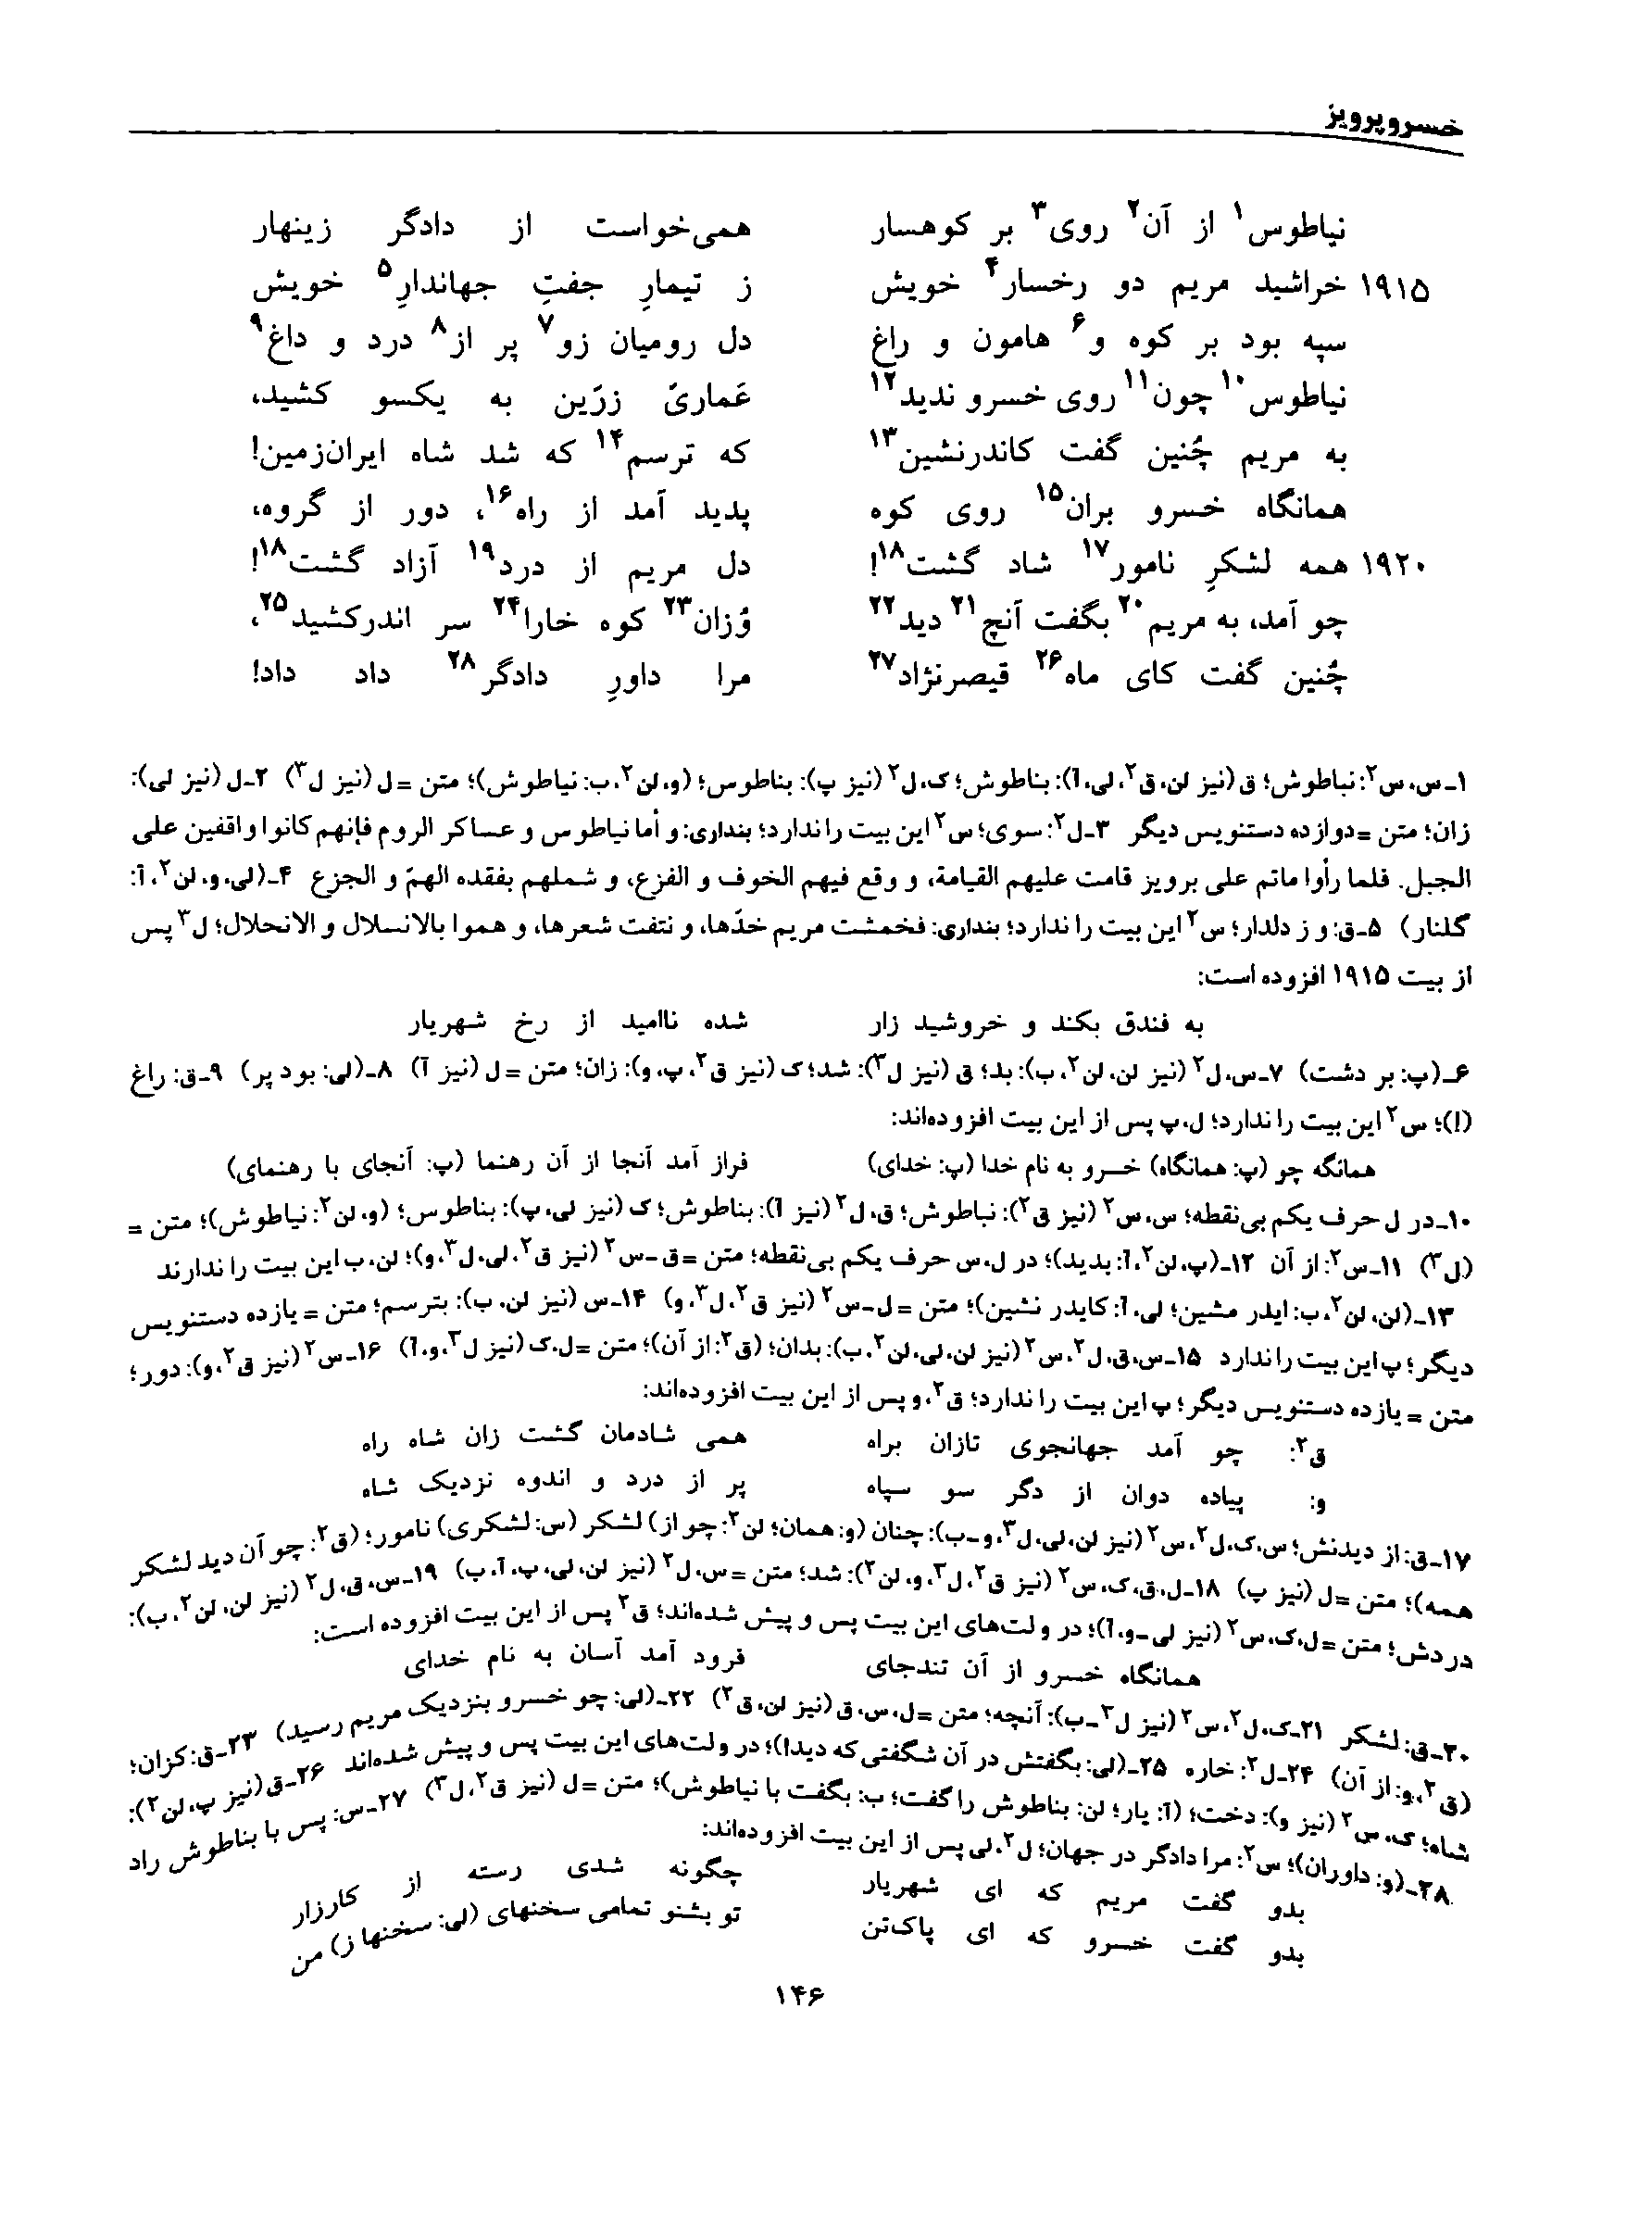 خسرو پرویز
نیاطوس۱ از آن۲ روی۳ بر کوهسار همی‌خواست از دادگر زینهار
۱۹۱۵ خراشید مریم دو رخسار۴ خویش ز تیمارِ جفتِ جهاندارِ۵ خویش
سپه بود بر کوه و۶ هامون و راغ دل رومیان زو۷ پر از۸ درد و داغ۹
نیاطوس۱۰ چون۱۱ روی خسرو ندید۱۲ عَماریِّ زرّین به یکسو کشید،
به مریم چُنین گفت کاندرنشین۱۳ که ترسم۱۴ که شد شاه ایران‌زمین!
همانگاه خسرو بران۱۵ روی کوه پدید آمد از راه۱۶، دور از گروه،
۱۹۲۰ همه لشکرِ نامور۱۷ شاد گشت۱۸! دل مریم از درد۱۹ آزاد گشت۱۸!
چو آمد، به مریم۲۰ بگفت آنچ۲۱ دید۲۲ وُزان۲۳ کوه خارا۲۴ سر اندرکشید۲۵،
چُنین گفت کای ماه۲۶ قیصرنژاد۲۷ مرا داورِ دادگر۲۸ داد داد!
۱ـ س، س۲: نباطوش؛ ق (نیز لن، ق۲، لی، آ): بناطوش؛ ک، ل۲ (نیز پ): بناطوس؛ (و، لن۲، ب: نیاطوش)؛ متن = ل (نیز ل۳) ۲ـ ل (نیز لی):
زان؛ متن = دوازده دستنویس دیگر ۳ـ ل۲: سوی؛ س۲ این بیت را ندارد؛ بنداری: و أما نیاطوس و عساکر الروم فإنهم کانوا واقفین علی
الجبل. فلما رأوا ماتم علی برویز قامت علیهم القیامة، و وقع فیهم الخوف و الفزع، و شملهم بفقده الهمّ و الجزع ۴ـ (لی، و، لن۲، آ:
گلنار) ۵ـ ق: و ز دلدار؛ س۲ این بیت را ندارد؛ بنداری: فخمشت مریم خدّها، و نتفت شعرها، و هموا بالانسلال و الانحلال؛ ل۳ پس
از بیت ۱۹۱۵ افزوده است:
به فندق بکند و خروشید زار شده ناامید از رخ شهریار
۶ـ (پ: بر دشت) ۷ـ س، ل۲ (نیز لن، لن۲، ب): بد؛ ق (نیز ل۳): شد؛ ک (نیز ق۲، پ، و): زان؛ متن = ل (نیز آ) ۸ـ (لی: بود پر) ۹ـ ق: راغ
(!)؛ س۲ این بیت را ندارد؛ ل، پ پس از این بیت افزوده‌اند:
همانگه چو (پ: همانگاه) خسرو به نام خدا (پ: خدای) فراز آمد آنجا از آن رهنما (پ: آنجای با رهنمای)
۱۰ـ در ل حرف یکم بی‌نقطه؛ س، س۲ (نیز ق۲): نباطوش؛ ق، ل۲ (نیز آ): بناطوش؛ ک (نیز لی، پ): بناطوس؛ (و، لن۲: نیاطوش)؛ متن =
(ل۳) ۱۱ـ س۲: از آن ۱۲ـ (پ، لن۲، آ: بدید)؛ در ل، س حرف یکم بی‌نقطه؛ متن = ق ـ س۲ (نیز ق۲، لی، ل۳، و)؛ لن، ب این بیت را ندارند
۱۳ـ (لن، لن۲، ب: ایدر مشین؛ لی، آ: کایدر نشین)؛ متن = ل ـ س۲ (نیز ق۲، ل۳، و) ۱۴ـ س (نیز لن، ب): بترسم؛ متن = یازده دستنویس
دیگر؛ پ این بیت را ندارد ۱۵ـ س، ق، ل۲، س۲ (نیز لن، لی، لن۲، ب): بدان؛ (ق۲: از آن)؛ متن = ل، ک (نیز ل۳، و، آ) ۱۶ـ س۲ (نیز ق۲، و): دور؛
متن = یازده دستنویس دیگر؛ پ این بیت را ندارد؛ ق۲، و پس از این بیت افزوده‌اند:
ق۲: چو آمد جهانجوی تازان براه همی شادمان گشت زان شاه راه
و: پیاده دوان از دگر سو سپاه پر از درد و اندوه نزدیک شاه
۱۷ـ ق: از دیدنش؛ س، ک، ل۲، س۲ (نیز لن، لی، ل۳، و ـ ب): چنان (و: همان؛ لن۲: چو از) لشکر (س: لشکری) نامور؛ (ق۲: چو آن دید لشکر
همه)؛ متن = ل (نیز پ) ۱۸ـ ل، ق، ک، س۲ (نیز ق۲، ل۳، و، لن۲): شد؛ متن = س، ل۲ (نیز لن، لی، پ، آ، ب) ۱۹ـ س، ق، ل۲ (نیز لن، لن۲، ب):
دردش؛ متن = ل، ک، س۲ (نیز لی ـ و، آ)؛ در و لت‌های این بیت پس و پیش شده‌اند؛ ق۲ پس از این بیت افزوده است:
همانگاه خسرو از آن تندجای فرود آمد آسان به نام خدای
۲۰ـ ق: لشکر ۲۱ـ ک، ل۲، س۲ (نیز ل۳ ـ ب): آنچه؛ متن = ل، س، ق (نیز لن، ق۲) ۲۲ـ (لی: چو خسرو بنزدیک مریم رسید) ۲۳ـ ق: کزان؛
(ق۲، و: از آن) ۲۴ـ ل۲: خاره ۲۵ـ (لی: بگفتش در آن شگفتی که دید!)؛ در و لت‌های این بیت پس و پیش شده‌اند ۲۶ـ ق (نیز پ، لن۲):
شاه؛ ک، س۲ (نیز و): دخت؛ (آ: یار؛ لن: بناطوش را گفت؛ ب: بگفت با نیاطوش)؛ متن = ل (نیز ق۲، ل۳) ۲۷ـ س: پس با بناطوش راد
۲۸ـ (و: داوران)؛ س۲: مرا دادگر در جهان؛ ل۲، لی پس از این بیت افزوده‌اند:
بدو گفت مریم که ای شهریار چگونه شدی رسته از کارزار
بدو گفت خسرو که ای پاک‌تن تو بشنو تمامی سخنهای (لی: سخنها ز) من
۱۴۶